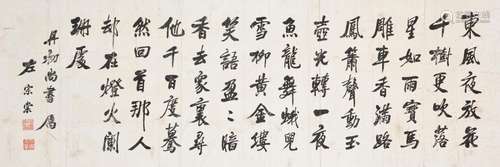 東風夜放花
千樹更吹落
星如雨寶馬
雕車香滿路
鳳簫聲動玉
壺光轉一夜
魚龍舞蛾兒
雪柳黃金縷
笑語盈〻暗
香去衆裏尋
他千百度驀
然回首那人
却在燈火闌
珊處
尚書屬
左宗棠